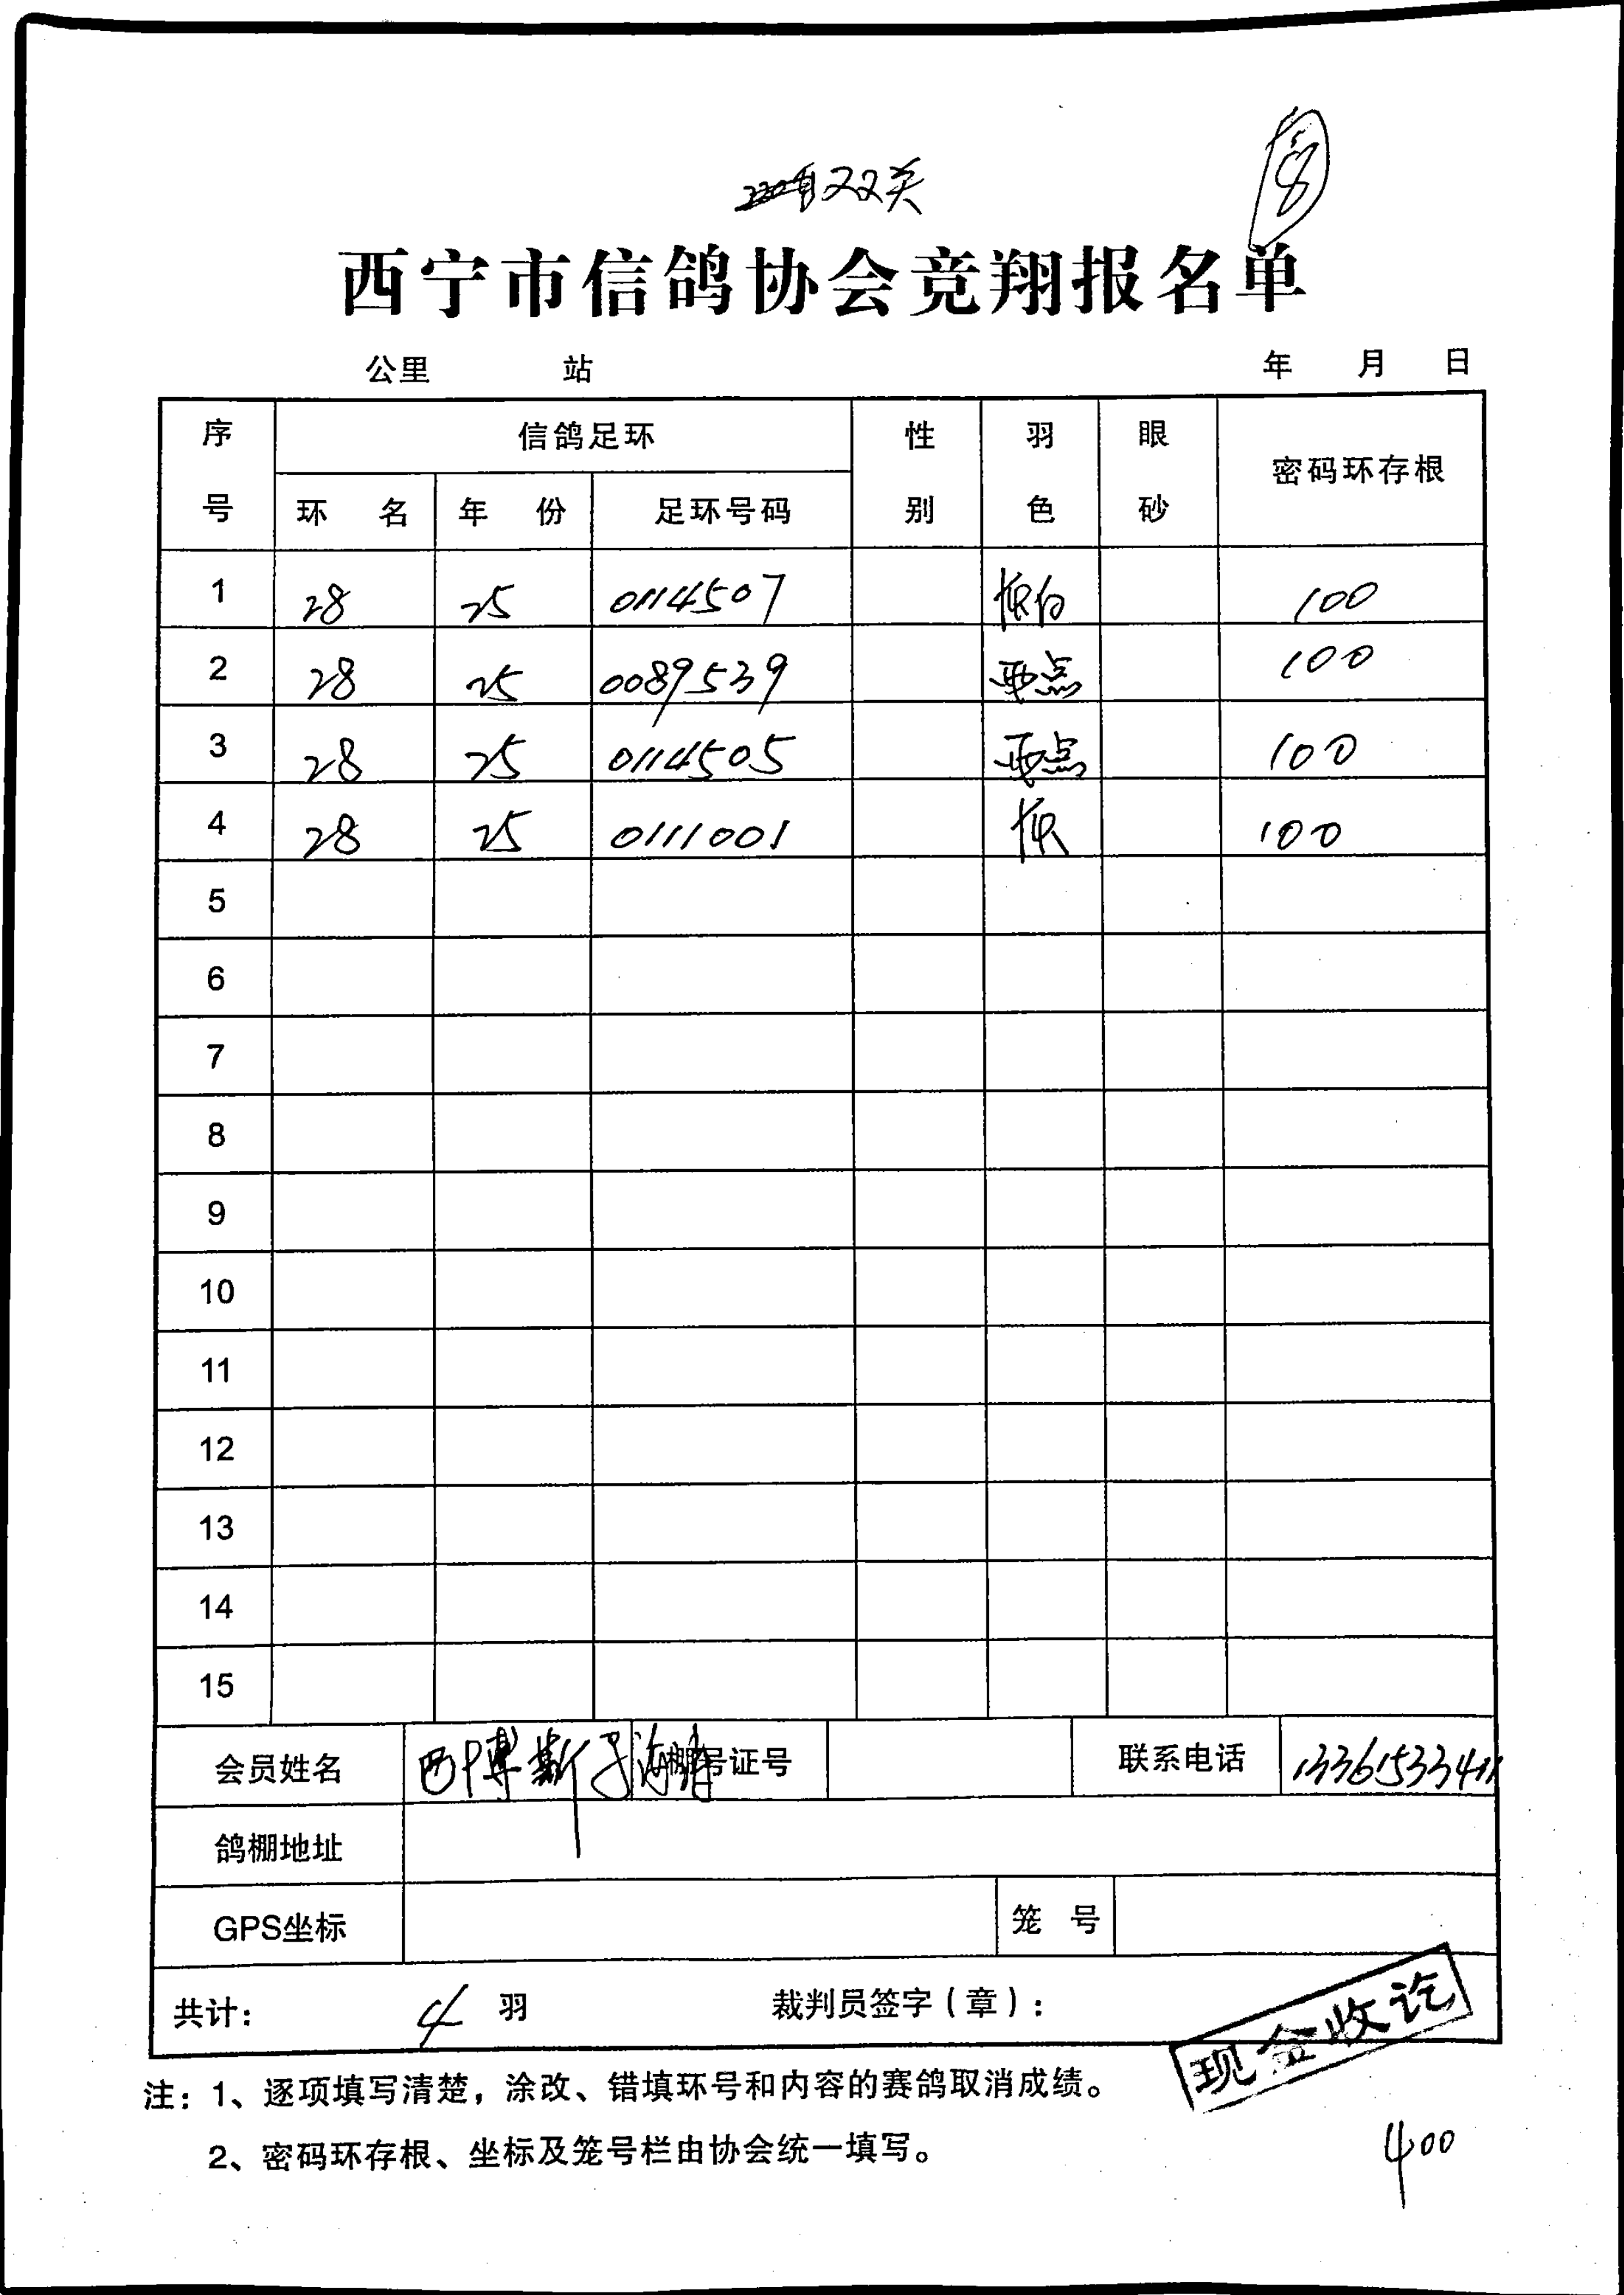 双关
8
西宁市信鸽协会竞翔报名单
公里 站 年 月 日
序号 信鸽足环 性别 羽色 眼砂 密码环存根
环名 年份 足环号码
1 28 25 0114507 灰白 100
2 28 25 0089539 雨点 100
3 28 25 0114505 雨点 100
4 28 25 0111001 灰 100
5
6
7
8
9
10
11
12
13
14
15
会员姓名 西博斯 棚号证号 联系电话 133615334
鸽棚地址
GPS坐标 笼号
共计: 4 羽 裁判员签字(章):
现金收讫
注:1、逐项填写清楚,涂改、错填环号和内容的赛鸽取消成绩。
2、密码环存根、坐标及笼号栏由协会统一填写。
400